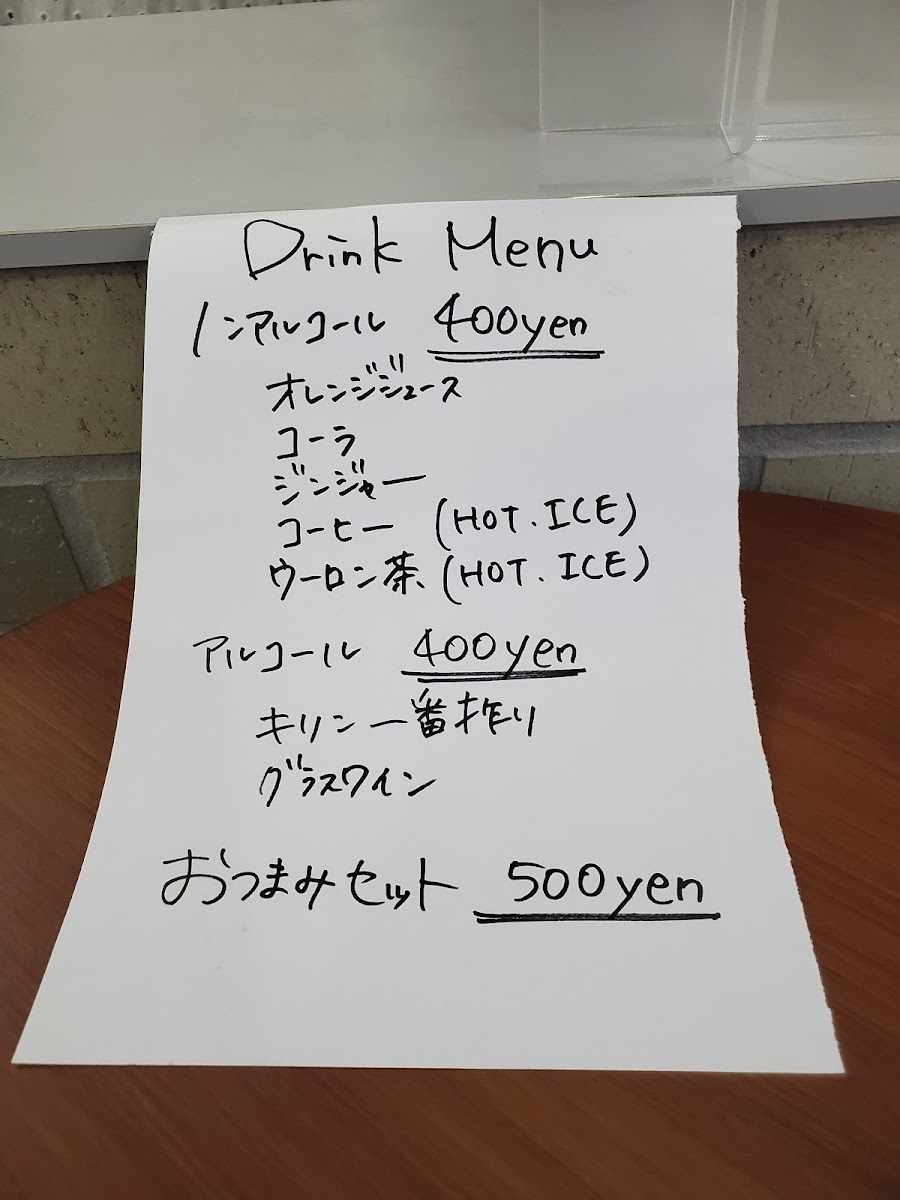 Drink Menu
ノンアルコール 400yen
オレンジジュース
コーラ
ジンジャー
コーヒー (HOT. ICE)
ウーロン茶 (HOT. ICE)
アルコール 400yen
キリン一番搾り
グラスワイン
おつまみセット 500yen